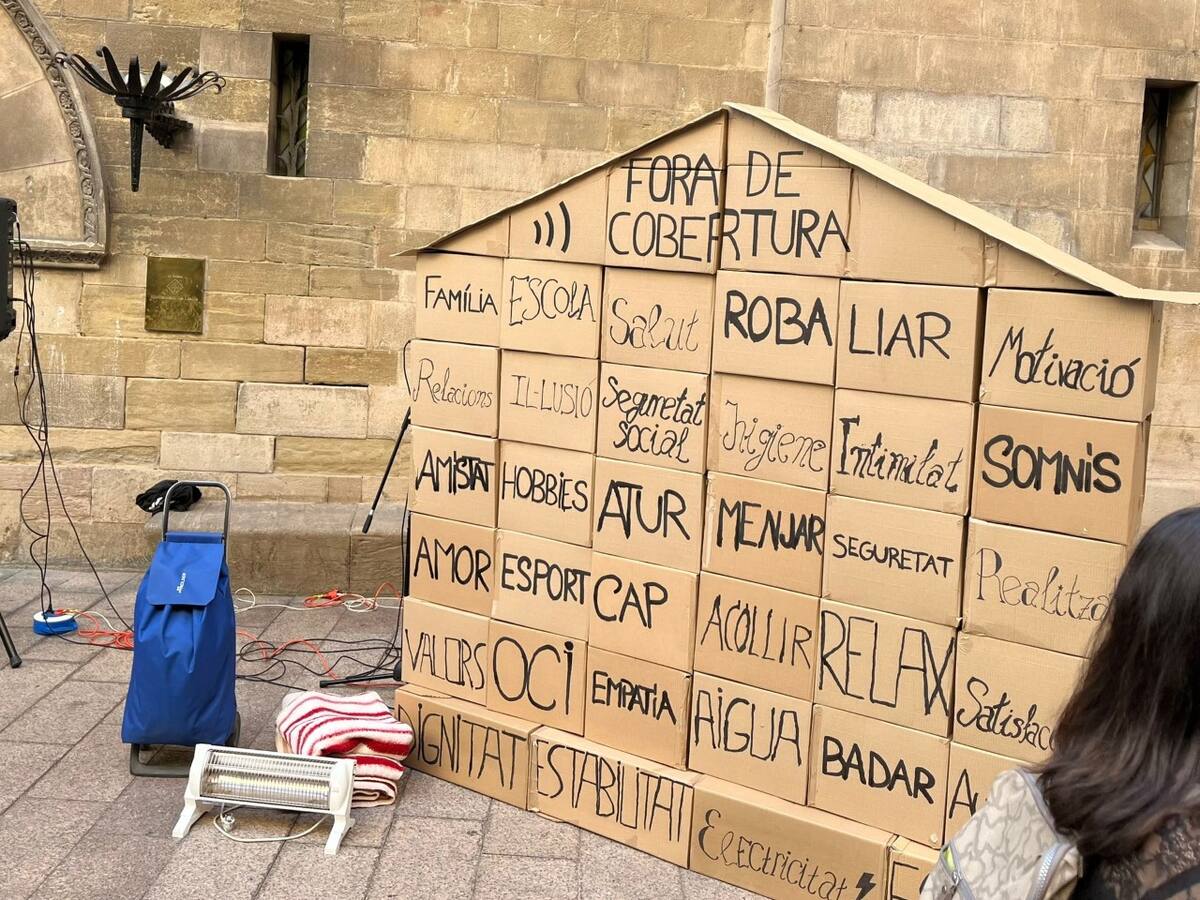 FORA DE
COBERTURA
FAMÍLIA ESCOLA Salut ROBA LIAR Motivació
Relacions IL·LUSIÓ Seguretat
social Higiene Intimitat SOMNIS
AMISTAT HOBBIES ATUR MENJAR SEGURETAT
AMOR ESPORT CAP ACOLLIR RELAX
VALORS OCI EMPATIA AIGUA BADAR
DIGNITAT ESTABILITAT Electricitat